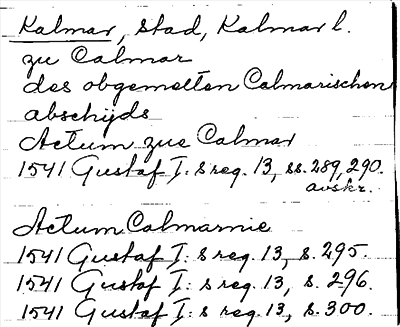 Kalmar, stad, Kalmar l.
zu Calmar
des obgemelten Calmarischen
abschijds
Actum zue Calmar
1541 Gustaf I: s reg. 13, ss. 289, 290.
avskr.
Actum Calmarnie
1541 Gustaf I: s reg. 13, s. 295.
1541 Gustaf I: s reg. 13, s. 296.
1541 Gustaf I: s reg. 13, s. 300.